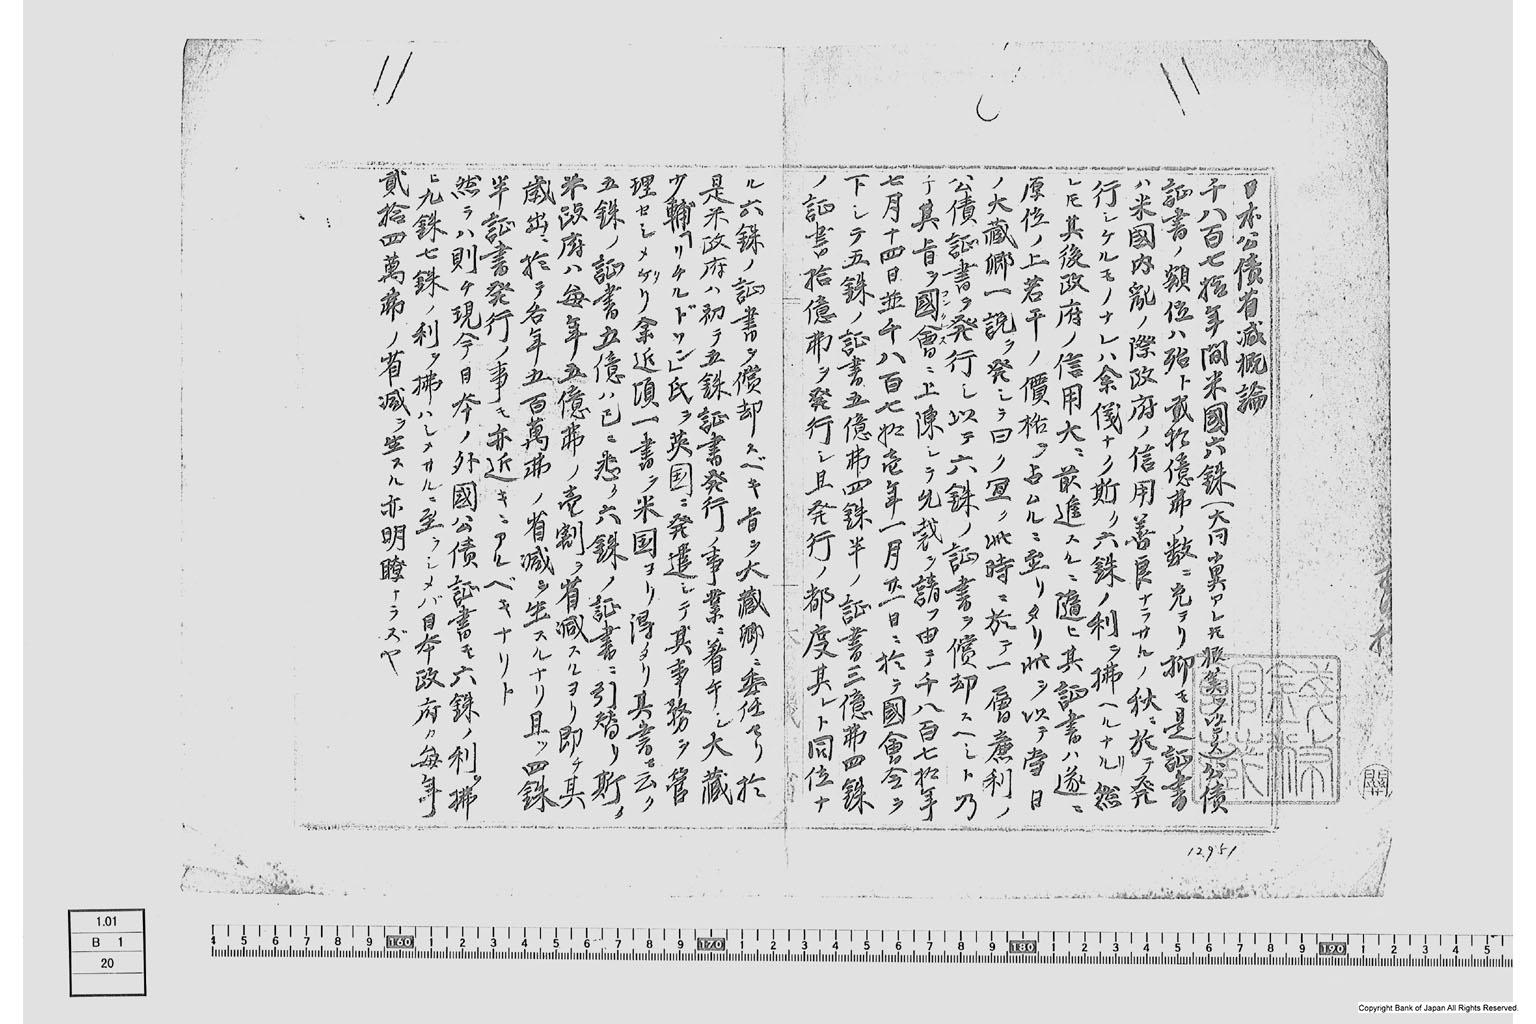 日本公債省減概論
千八百七拾年間米國六銖(大同小異アレ𪜈概算ヲ以テ云)公債
証書ノ額位ハ殆ト貳拾億弗ノ数ニ充テリ抑モ是証書
ハ米國内乱ノ際政府ノ信用善良ナラサルノ秋ニ於テ発
行シケルモノナレハ余儀ナク斯ク六銖ノ利ヲ拂ヘルナリ然
レ𪜈其後政府ノ信用大ニ前進スルニ隨ヒ其証書ハ遂ニ
原位ノ上若干ノ價格ヲ占ムルニ至リタリ此ヲ以テ當日
ノ大藏卿一説ヲ発シテ曰ク宜ク此時ニ於テ一層廉利ノ
公債証書ヲ発行シ以テ六銖ノ証書ヲ償却スヘシト乃
チ其旨ヲ國會ニ上陳シテ允裁ヲ請フ由テ千八百七拾年
コングレス
七月十四日並千八百七拾壱年一月廿日ニ於テ國會令ヲ
下シテ五銖ノ証書五億弗四銖半ノ証書三億弗四銖
ノ証書拾億弗ヲ発行シ且発行ノ都度其レト同位ナ
ル六銖ノ証書ヲ償却スベキ旨ヲ大藏卿ニ委任セリ於
是米政府ハ初テ五銖証書発行ノ事業ニ着手シ大藏
少輔「リチルドソン」氏ヲ英国ニ発遣シテ其事務ヲ管
理セシメケリ余近頃一書ヲ米国ヨリ得タリ其書ニ云ク
五銖ノ証書五億ハ已ニ悉ク六銖ノ証書ニ引替リ斯ク
米政府ハ毎年五億弗ノ壱割ヲ省減スルヨリ即チ其
歳出ニ於テ各年五百萬弗ノ省減ヲ生スルナリ且ツ四銖
半証書発行ノ事モ亦近キニアルベキナリト
然ラハ則チ現今日本ノ外國公債証書モ六銖ノ利ヲ拂
ヒ九銖七銖ノ利ヲ拂ハシメサルニ至ラシメバ日本政府ハ毎年
貳拾四萬弗ノ省減ヲ生スル亦明瞭ナラズヤ
12951
1.01
B 1
20
Copyright Bank of Japan All Rights Reserved.